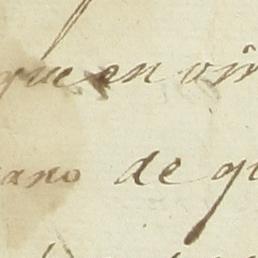 que en vir
ano de qu